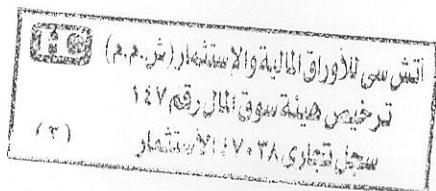 اتش سى للأوراق المالية والإستثمار (ش.م.م)
ترخيص هيئة سوق المال رقم ١٤٧
سجل تجارى ١٧٠٣٨ الأستثمار
(٣)